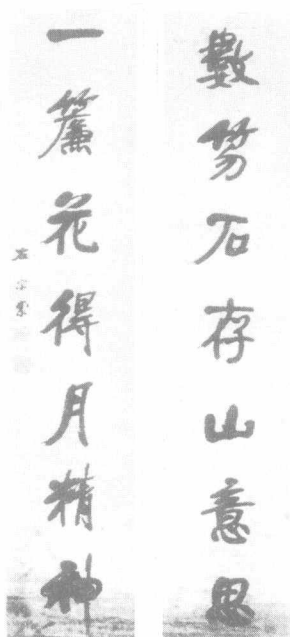 數笏石存山意思
一簾花得月精神